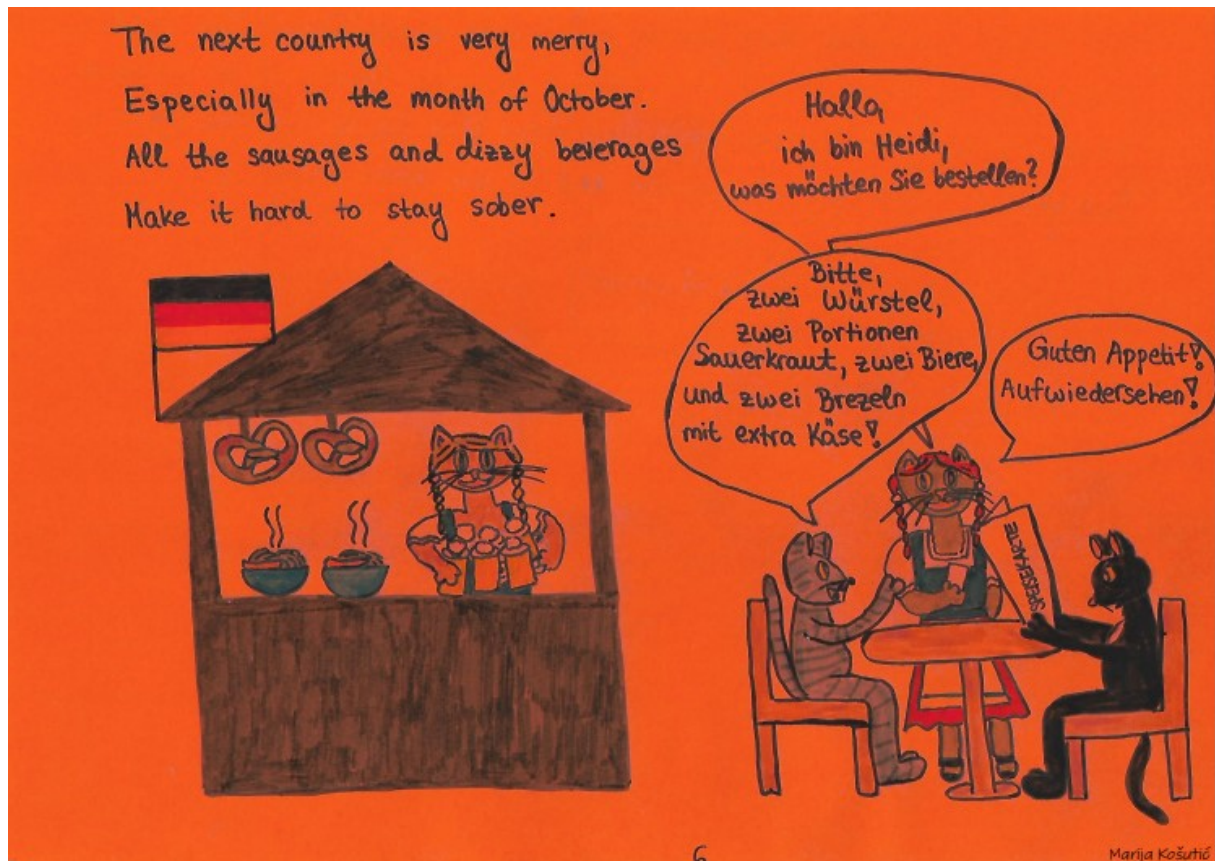 The next country is very merry,
Especially in the month of October.
All the sausages and dizzy beverages
Make it hard to stay sober.
Hallo,
ich bin Heidi,
was möchten Sie bestellen?
Bitte,
zwei Würstel,
zwei Portionen
Sauerkraut, zwei Biere,
und zwei Brezeln
mit extra Käse!
Guten Appetit!
Aufwiedersehen!
SPEISEKARTE
6
Marija Košutić